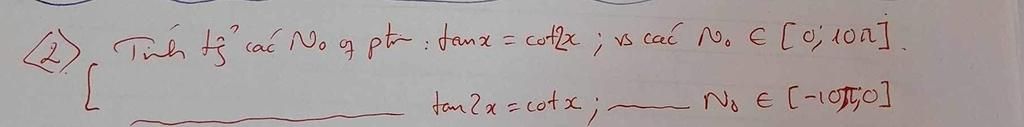 <2> Tính tg² các No of ptr : tanx = cot2x ; vs các No ∈ [0; 10π].
tan2x = cotx ; No ∈ [-10π;0]